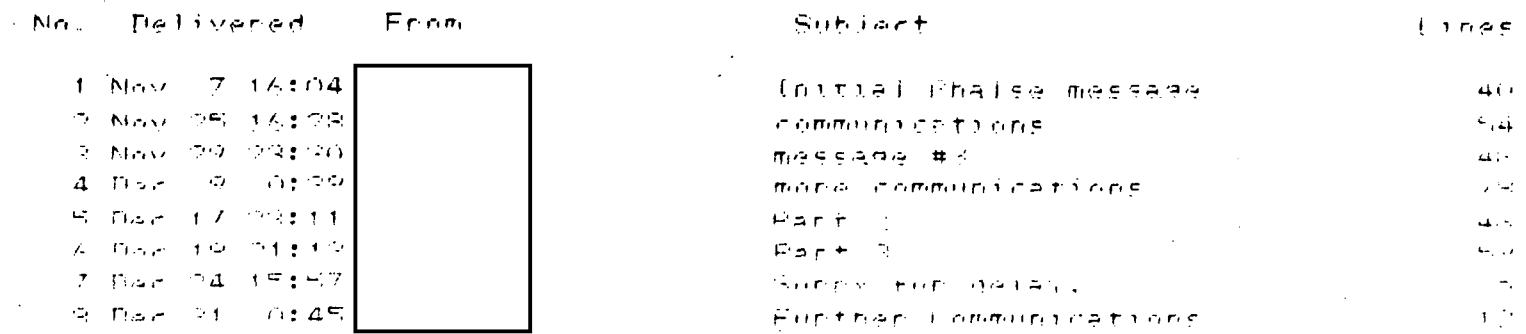 No. Delivered From Subject Lines
1 Nov 7 16:04 Initial Phalse message 40
2 Nov 25 16:28 communications 54
3 Nov 29 23:20 message #3
4 Dec 9 0:29 more communications
5 Dec 17 23:11 Part
6 Dec 19 21:19 Part
7 Dec 24 15:57 Sorry for delay.
8 Dec 31 0:45 Further Communications